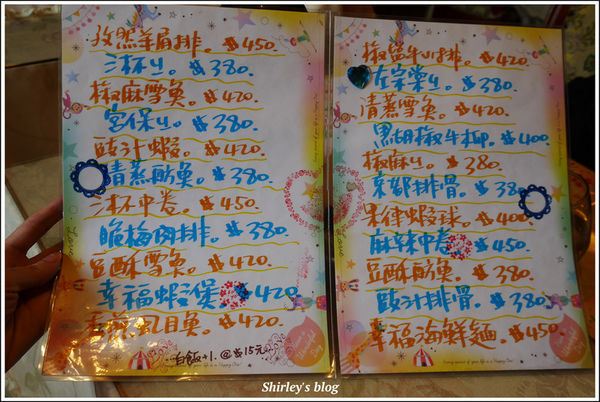 孜然羊肩排。$450.
三杯ㄐ。$380.
椒麻雪魚。$420.
宮保ㄐ。$380.
豉汁蝦。$420.
清蒸魴魚。$380.
三杯中卷。$450.
脆梅肉排。$380.
豆酥雪魚。$420.
幸福蝦煲。$420
清蒸虱目魚。$420.
白飯+1.@$15元
椒鹽牛小排。$420.
左宗棠ㄐ。$380.
清蒸雪魚。$420.
黑胡椒牛柳。$400.
椒麻ㄐ。$380.
京都排骨。$380.
果律蝦球。$400.
麻辣中卷。$450.
豆酥魴魚。$380.
豉汁排骨。$380.
幸福海鮮麵。$450.
Shirley's blog